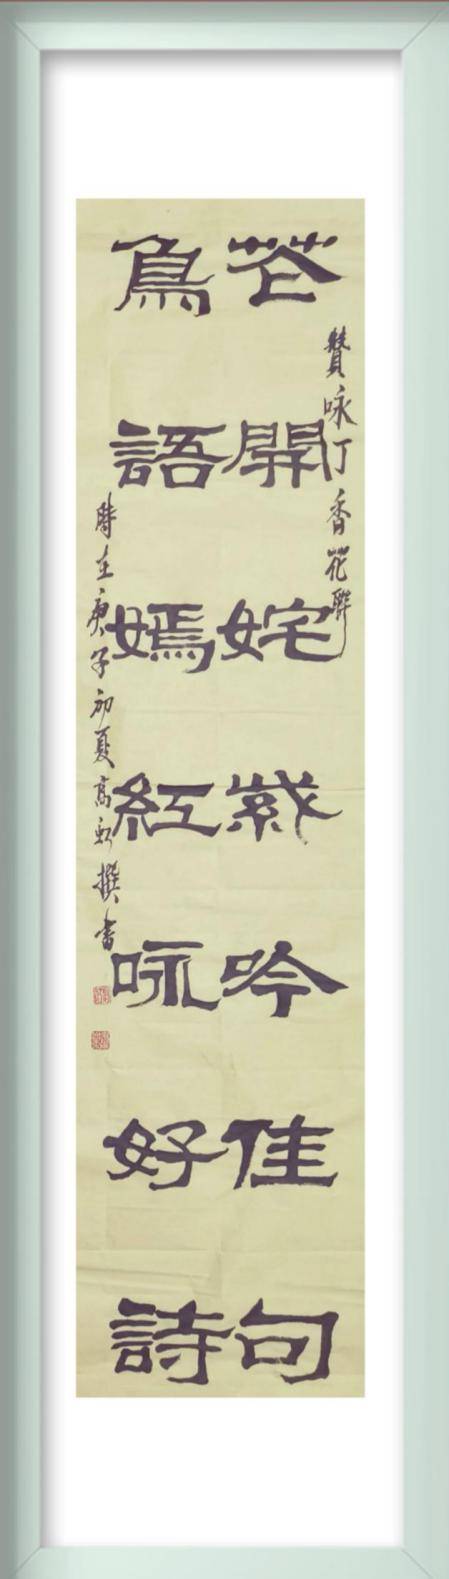 贊咏丁香花聯
花開姹紫吟佳句
鳥語嫣紅咏好詩
時在庚子初夏高撰書